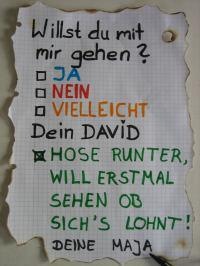 Willst du mit
mir gehen?
JA
NEIN
VIELLEICHT
Dein DAViD
HOSE RUNTER,
WILL ERSTMAL
SEHEN OB
SICH'S LOHNT!
DEINE MAJA